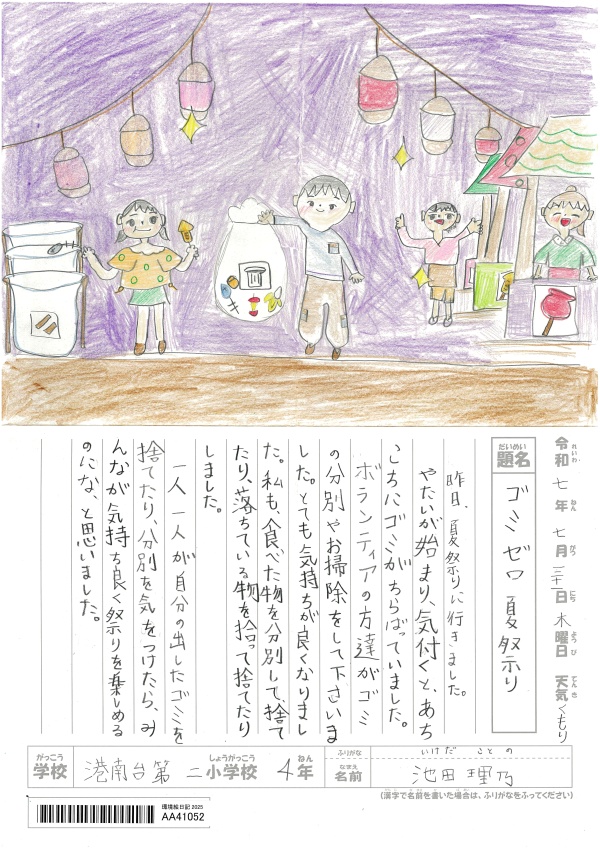 令和七年七月三十一日木曜日 天気くもり
れいわ ねん がつ にち ようび てんき
題名 ゴミゼロ夏祭り
だいめい
昨日、夏祭りに行きました。
やたいが始まり、気付くと、あち
こちにゴミがちらばっていました。
ボランティアの方達がゴミ
の分別やお掃除をして下さいま
した。とても気持ちが良くなりまし
た。私も、食べた物を分別して、捨て
たり、落ちている物を拾って捨てたり
しました。
一人一人が自分の出したゴミを
捨てたり、分別を気をつけたら、み
んなが気持ち良く祭りを楽しめる
のにな、と思いました。
がっこう しょうがっこう ねん
学校 港南台第二小学校 4年
ふりがな いけだ ことの
なまえ
名前 池田理乃
(漢字で名前を書いた場合は、ふりがなをふってください)
環境絵日記 2025
AA41052